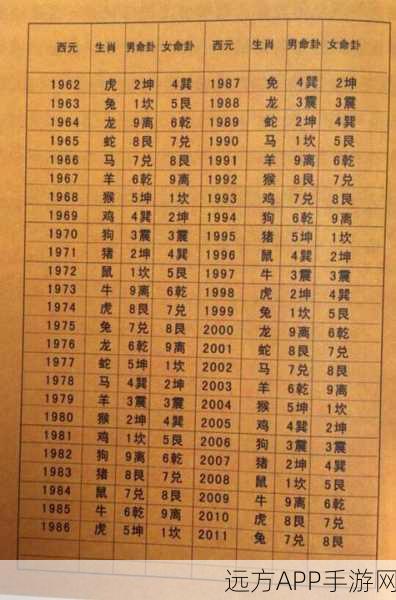 西元 生肖 男命卦 女命卦 西元 生肖 男命卦 女命卦
1962 虎 2坤 4巽 1987 兔 4巽 2坤
1963 兔 1坎 5艮 1988 龙 3震 3震
1964 龙 9离 6乾 1989 蛇 2坤 4巽
1965 蛇 8艮 7兑 1990 马 1坎 5艮
1966 马 7兑 8艮 1991 羊 9离 6乾
1967 羊 6乾 9离 1992 猴 8艮 7兑
1968 猴 5坤 1坎 1993 鸡 7兑 8艮
1969 鸡 4巽 2坤 1994 狗 6乾 9离
1970 狗 3震 3震 1995 猪 5坤 1坎
1971 猪 2坤 4巽 1996 鼠 4巽 2坤
1972 鼠 1坎 5艮 1997 牛 3震 3震
1973 牛 9离 6乾 1998 虎 2坤 4巽
1974 虎 8艮 7兑 1999 兔 1坎 5艮
1975 兔 7兑 8艮 2000 龙 9离 6乾
1976 龙 6乾 9离 2001 蛇 8艮 7兑
1977 蛇 5坤 1坎 2002 马 7兑 8艮
1978 马 4巽 2坤 2003 羊 6乾 9离
1979 羊 3震 3震 2004 猴 5坤 1坎
1980 猴 2坤 4巽 2005 鸡 4巽 2坤
1981 鸡 1坎 5艮 2006 狗 3震 3震
1982 狗 9离 6乾 2007 猪 2坤 4巽
1983 猪 8艮 7兑 2008 鼠 1坎 5艮
1984 鼠 7兑 8艮 2009 牛 9离 6乾
1985 牛 6乾 9离 2010 虎 8艮 7兑
1986 虎 5坤 1坎 2011 兔 7兑 8艮
远方APP手游网